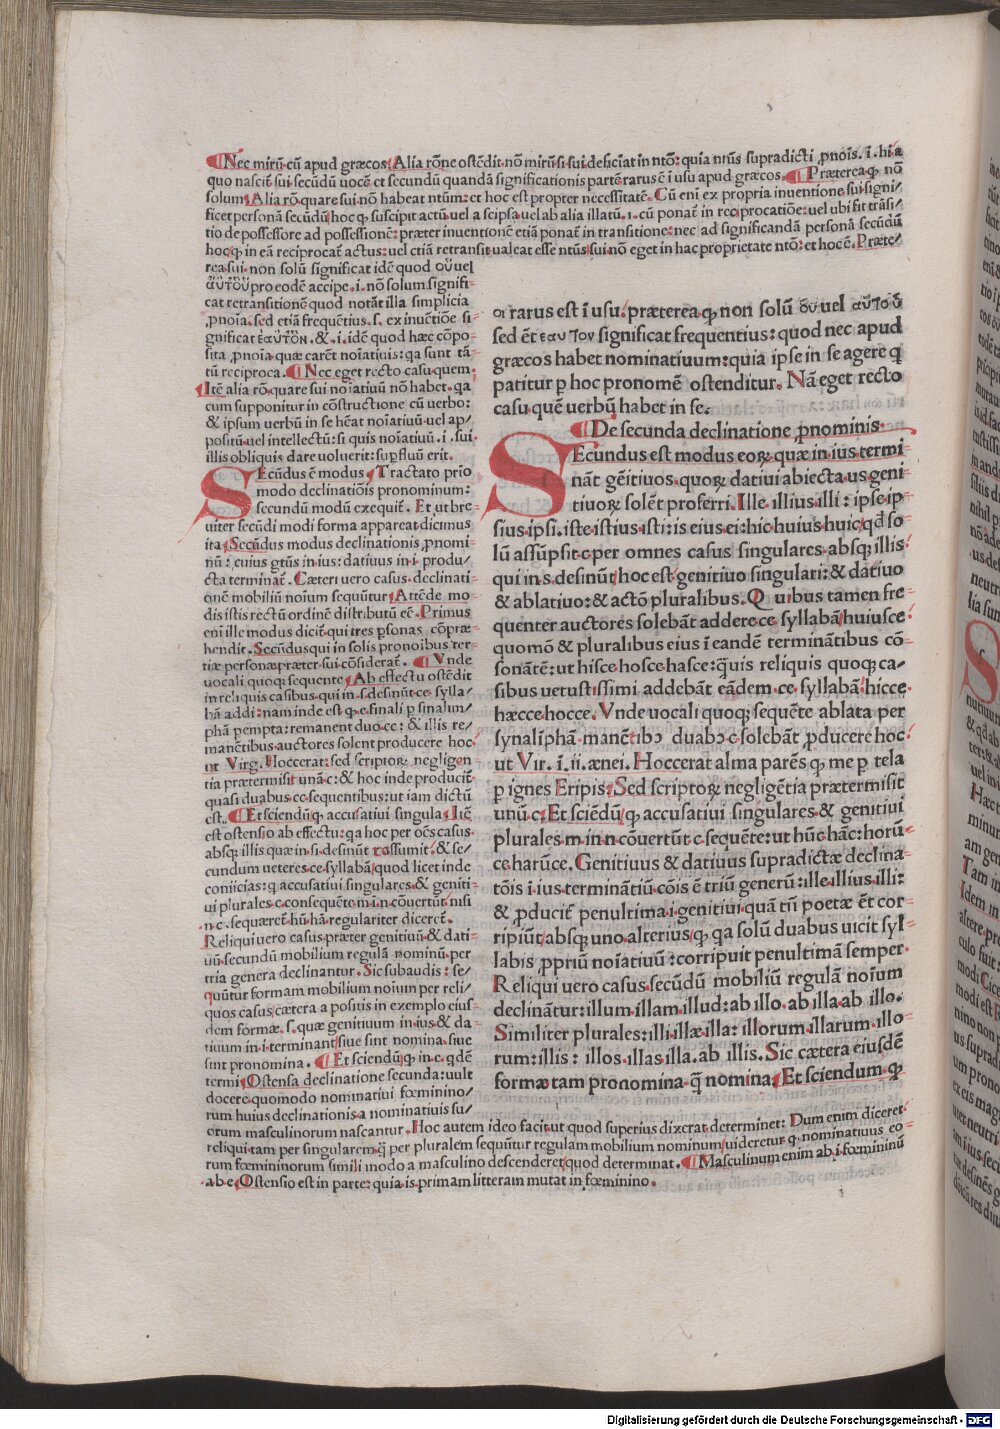 ¶Nec mirū·cū apud græcos/Alia rōne ostēdit·nō mirū si sui deficiat in ntō: quia ntūs supradicti ꝓnois·.ī.hi·a
quo nascit̄·sui·secūdū uocē et secundū quandā significationis partē rarus ē ī usu apud græcos.¶Præterea ꝙ nō
solum/Alia rō·quare sui·nō habeat ntūm: et hoc est propter necessitatē·Cū eni ex propria inuentione sui signi/
ficet personā secūdū/hoc ꝙ suscipit actū·uel a seipsa·uel ab alia illatū·.i.cū ponat̄ in reciprocatiōe: uel ubi fit trāsi/
tio de possessore ad possessionē: præter inuentionē etiā ponat̄ in transitione: nec ad significandā personā secūdū
hoc ꝙ in eā reciprocat̄ actus: uel etiā retransit·ualeat esse ntūs/sui nō eget in hac proprietate ntō: et hoc ē·Præte/
rea sui·non solū significat idē quod οὗ uel
αὐτοῦ pro eodē accipe·.i.nō solum signifi-
cat retransitionē quod notāt illa simplicia
ꝓnoīa·sed etiā frequētius·.s.ex inuētiōe si-
gnificat ἑαυτὸν·&.i.idē quod hæc cōpo-
sita ꝓnoīa quæ carēt noīatiuis: qa sunt tā-
tū reciproca.¶Nec eget recto casu quem·
Itē alia rō·quare sui noīatiuū nō habet·qa
cum supponitur in cōstructione cū uerbo:
& ipsum uerbū in se hēat noīatiuū uel ap/
positū·uel intellectū: si quis noīatiuū·.i.sui·
illis obliquis dare uoluerit: suꝑfluū erit.
SEcūdus ē modus/Tractato prīo
modo declinatiōis pronominum:
secundū modū exequit̄·Et ut bre-
uiter secūdi modi forma appareat dicimus
ita/Secūdus modus declinationis ꝓnomi-
nū: cuius gtūs in ius: datiuus in·i·produ/
cta terminat̄·Cæteri uero casus·declinati-
onē mobiliū noīum sequūtur/Attēde mo-
dis istis rectū ordinē distributū eē·Primus
eni ille modus dicit̄·qui tres ꝑsonas cōpræ-
hendit·Secūdus·qui in solis pronoībus ter-
tiæ personæ·præter sui·cōsiderat̄.¶Vnde
uocali quoqꝫ sequente/Ab effectu ostēdit
in reliquis casibus·qui in·s·desinūt·ce sylla/
bā addi: nam inde est ꝙ·e·finali ꝑ sinalim/
phā ꝑempta: remanent duo·cc: & illis re/
manētibus·auctores solent producere hoc·
ut Virg·Hoccerat: sed scriptoꝝ negligen
tia prætermisit unā·c: & hoc inde producit̄
quasi duabus·cc·sequentibus: ut iam dictū
est.¶Et sciendū ꝙ accusatiui singula/Itē
est ostensio ab effectu: qa hoc per oēs casus·
absqꝫ illis quæ in·s·desinūt assumit̄: & se/
cundum ueteres·ce·syllabā/quod licet inde
coniicias: ꝙ accusatiui singulares·& geniti-
ui plurales·c·consequēte·m·i·n·cōuertūt·nisi
n·c·sequæret̄·hū·hā·regulariter diceret̄·
Reliqui uero casus·præter genitiuū·& dati-
uū·secundū mobilium regulā nominū·per
tria genera declinantur·Sic subaudis: se/
quūtur formam mobilium noīum per reli/
quos casus/cætera a positis in exemplo eius-
dem formæ·.s.quæ genitiuum in·ius·& da-
tiuum in·i·terminant/siue sint nomina·siue
sint pronomina.¶Et sciendū ꝙ in·c·gdē
termi/Ostensa declinatione secunda: uult
docere·quomodo nominatiui fœminino/
rum huius declinationis·a nominatiuis su/
orum masculinorum nascantur·Hoc autem ideo facit·ut quod superius dixerat·determinet: Dum enim diceret·
reliqui·tam per singularem·ꝙ per pluralem sequūtur regulam mobilium nominum/uideretur ꝙ nominatiuus eo-
rum fœmininorum simili modo a masculino descenderet/quod determinat.¶Masculinum enim ab·i·fœmininū
ab·e·Ostensio est in parte: quia·is·primam litteram mutat in fœminino.
oī rarus est ī usu·præterea ꝙ non solū οὗ uel αὐτοῦ
sed ēt ἑαυτον significat frequentius: quod nec apud
græcos habet nominatiuum: quia ipse in se agere ꝙ
patitur ꝑ hoc pronomē ostenditur·Nā eget recto
casu·quē uerbū habet in se.
¶De secunda declinatione ꝓnominis·
SEcundus est modus eoꝝ·quæ in·ius·termi
nāt gēitiuos·quoꝝ datiui abiecta·us·geni
tiuoꝝ solēt proferri·Ille illius illi: ipse ip-
sius ipsi·iste istius isti: is eius ei: hic huius huic/qd̄ so-
lū assūpsit·c·per omnes casus singulares·absqꝫ illis·
qui in·s·desinūt/hoc est genitiuo singulari: & datiuo
& ablatiuo: & actō pluralibus·Quibus tamen fre-
quenter auctores solebāt addere·ce·syllabā/huiusce·
quomō & pluralibus eius ī eandē terminātibus cō-
sonātē: ut hisce hosce hasce: ꝙuis reliquis quoqꝫ ca-
sibus uetustissimi addebāt eādem·ce·syllabā: hicce·
hæcce·hocce·Vnde uocali quoqꝫ sequēte ablata per
synalīphā·manētibꝰ duabꝰ·c·solebāt ꝓducere hoc·
ut Vir·.ī.ii.ænei·Hoccerat alma parēs ꝙ me ꝑ tela
ꝑ ignes Eripis/Sed scriptoꝝ negligētia prætermisit
unū·c·Et sciēdū ꝙ accusatiui singulares·& genitiui
plurales·m·in·n·cōuertūt·c·sequēte: ut hūc·hāc: horū-
ce·harūce·Genitiuus & datiuus supradictæ declina-
tōis ī·ius·terminātiū·cōis ē triū generū: ille illius illi:
& ꝓducit̄ penultima·i·genitiui·quā tū poetæ ēt cor-
ripiūt/absqꝫ uno·alterius/ꝙ qa solū duabus uicit syl-
labis ꝓpriū noīatiuū: corripuit penultimā semper·
Reliqui uero casus·secūdū mobiliū regulā noīum
declināt̄ur: illum illam illud: ab illo·ab illa·ab illo.
Similiter plurales: illi illæ illa: illorum illarum illo
rum: illis: illos illas illa·ab illis·Sic cætera eiusdē
formæ tam pronomina ꝙ nomina/Et sciendum ꝙ
Digitalisierung gefördert durch die Deutsche Forschungsgemeinschaft - DFG